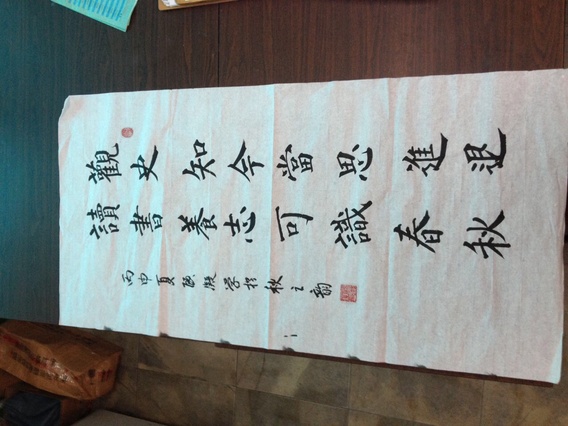 觀史知今當思進退
讀書養志可識春秋
丙申夏凝学秋之韵